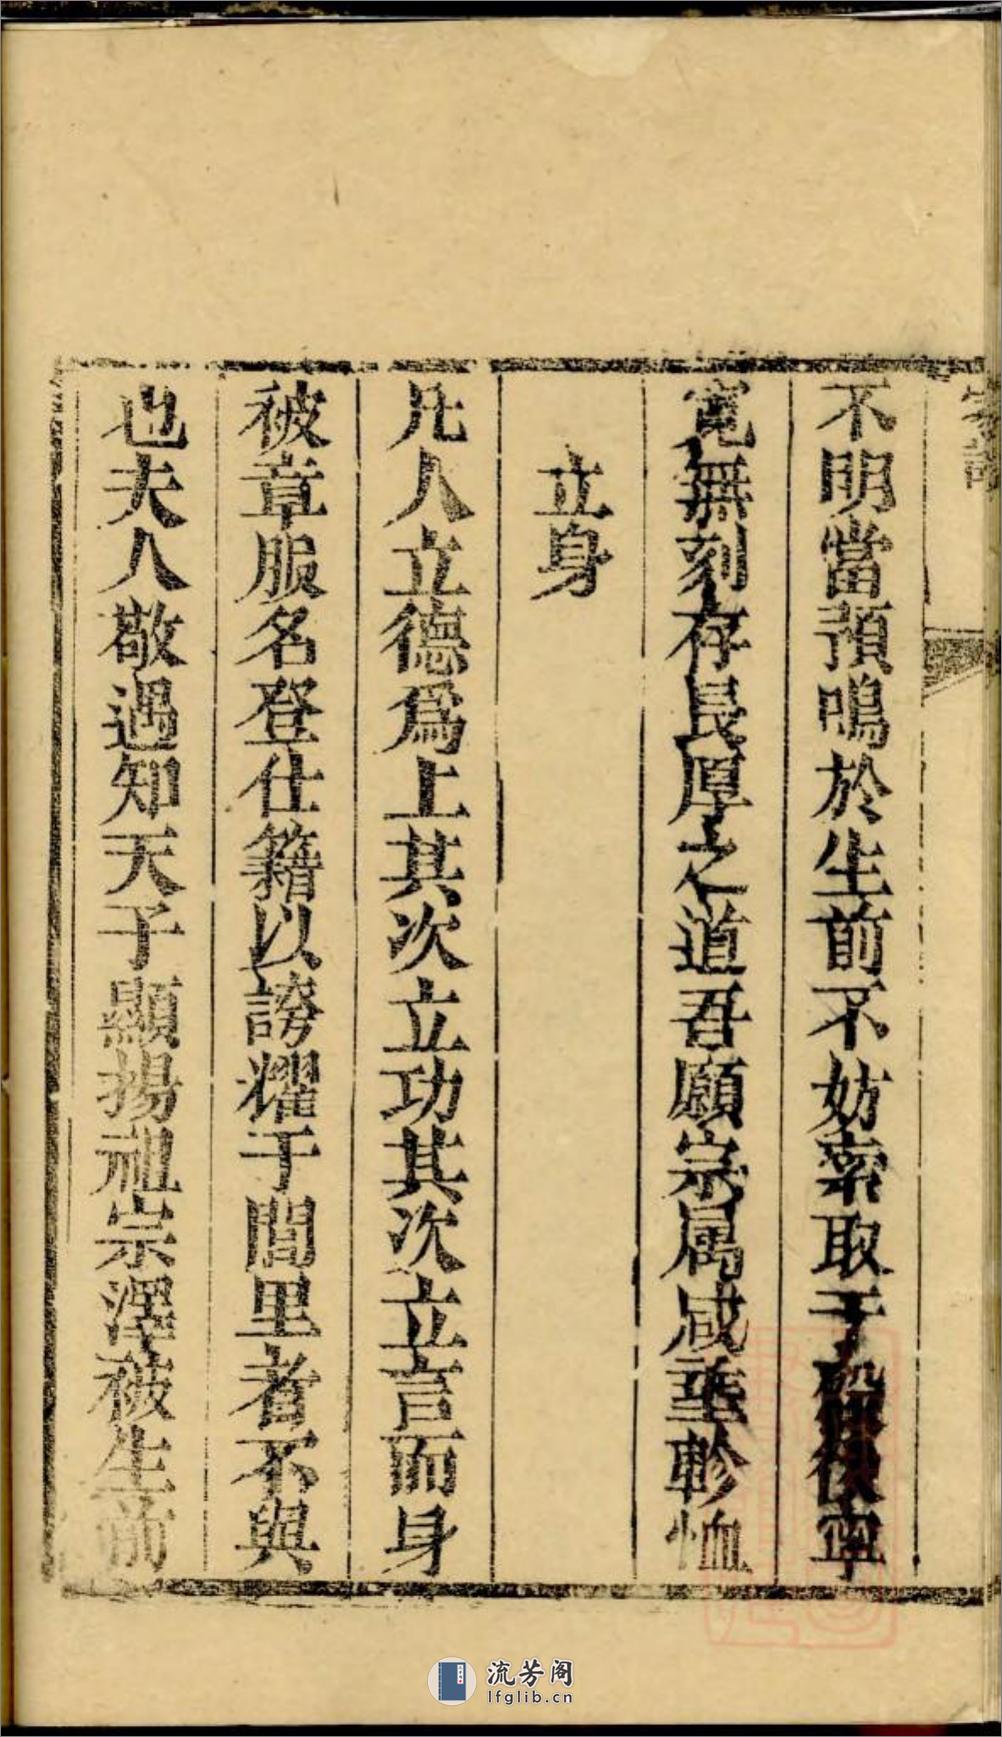 家訓
不明當預鳴於生前不妨索取于歿後寧
寛無刻存長厚之道吾願宗属咸垂軫恤
立身
凡人立德爲上其次立功其次立言而身
被章服名登仕籍以誇耀于閭里者不與
也夫人敬遇知天子顯揚祖宗澤被生前
流芳阁
lfglib.cn